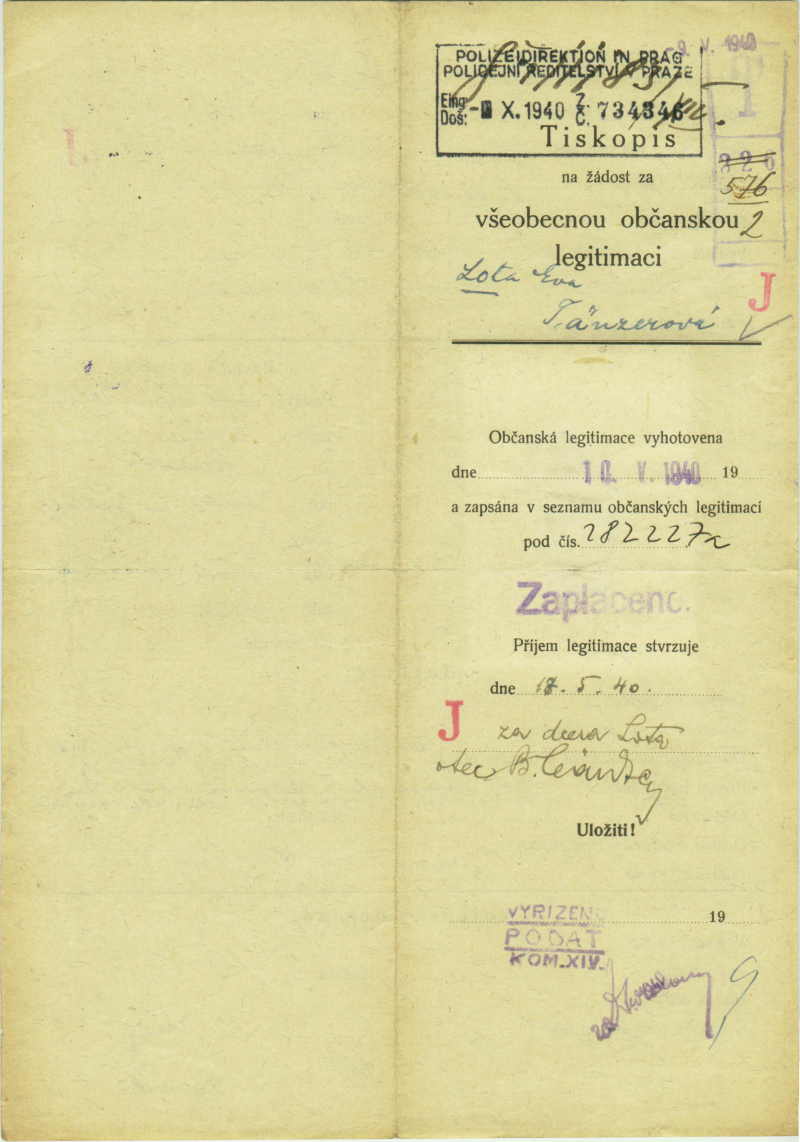 9. V. 1940
POLIZEIDIREKTION IN PRAG
POLICEJNÍ ŘEDITELSTVÍ V PRAZE
Eing.
Doš.
X. 1940
Z.
Č.
734346
1
Tiskopis
na žádost za
576
všeobecnou občanskou
2
legitimaci
Lota Eva
J
Tänzerová
Občanská legitimace vyhotovena
dne 10. V. 1940 19
a zapsána v seznamu občanských legitimací
pod čís. 282227
Zaplaceno.
Příjem legitimace stvrzuje
dne 17. 5. 40.
J
za dceru Lota
otec B.
Uložiti!
19
VYŘIZENO
PODAT
KOM. XIV.